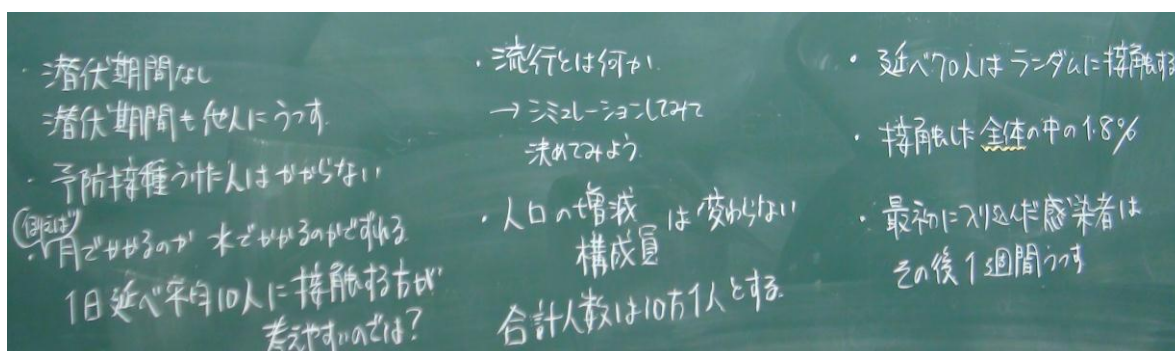 ・潜伏期間なし
潜伏期間も他人にうつす.
・予防接種うけた人はかからない
例えば
・月でかかるのか 水でかかるのかでずれる
1日延べ 10人に接触する方が
考えやすいのでは?
・流行とは何か.
→ シミュレーションしてみて
決めてみよう.
・人口の増減
構成員
は変わらない
合計人数は10万1人とする.
・延べ70人はランダムに接触する
・接触した全体の中の1.8%
・最初に入り込んだ感染者は
その後1週間うつす